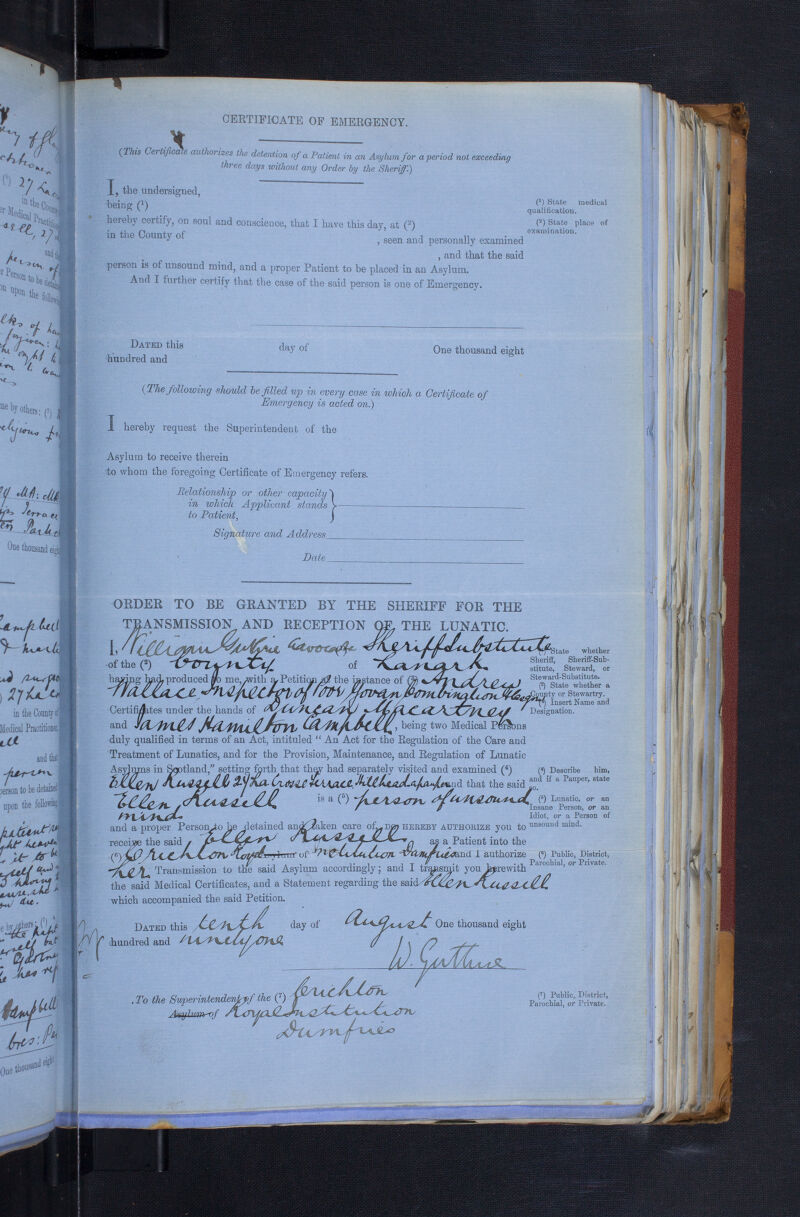 CERTIFICATE OF EMERGENCY.
(This Certificate authorizes the detention of a Patient in an Asylum for a period not exceeding
three days without any Order by the Sheriff.)
I, the undersigned,
being (¹)
hereby certify, on soul and conscience, that I have this day, at (²)
in the County of
, seen and personally examined
, and that the said
person is of unsound mind, and a proper Patient to be placed in an Asylum.
And I further certify that the case of the said person is one of Emergency.
(¹) State medical
qualification.
(²) State place of
examination.
DATED this day of One thousand eight
hundred and
(The following should be filled up in every case in which a Certificate of
Emergency is acted on.)
I hereby request the Superintendent of the
Asylum to receive therein
to whom the foregoing Certificate of Emergency refers.
Relationship or other capacity
in which Applicant stands
to Patient,
Signature and Address
Date
ORDER TO BE GRANTED BY THE SHERIFF FOR THE
TRANSMISSION AND RECEPTION OF THE LUNATIC.
I, William Guthrie Advocate Sheriff Substitute
of the (²) County of Lanark
having had produced to me, with a Petition at the instance of (³) Andrew
Wallace Inspector of Poor Govan Combination Glasgow
Certificates under the hands of Duncan Macartney
and James Hamilton Campbell, being two Medical Persons
duly qualified in terms of an Act, intituled "An Act for the Regulation of the Care and
Treatment of Lunatics, and for the Provision, Maintenance, and Regulation of Lunatic
Asylums in Scotland," setting forth that they had separately visited and examined (⁴)
Ellen Russell 27 La Crosse Terrace Hillhead a pauper and that the said
Ellen Russell is a (⁵) person of unsound
mind
and a proper Person to be detained and taken care of, DO HEREBY AUTHORIZE you to
receive the said Ellen Russell as a Patient into the
(⁶) Crichton Royal Asylum of Institution Dumfries and I authorize
her Transmission to the said Asylum accordingly; and I transmit you herewith
the said Medical Certificates, and a Statement regarding the said Ellen Russell
which accompanied the said Petition.
State whether
Sheriff, Sheriff-Sub-
stitute, Steward, or
Steward-Substitute.
(²) State whether a
County or Stewartry.
Insert Name and
Designation.
(⁴) Describe him,
and if a Pauper, state
so.
(⁵) Lunatic, or an
Insane Person, or an
Idiot, or a Person of
unsound mind.
(⁶) Public, District,
Parochial, or Private.
DATED this tenth day of August One thousand eight
hundred and ninety one
W. Guthrie
To the Superintendent of the (⁷) Crichton
Asylum of Royal Institution
Dumfries
(⁷) Public, District,
Parochial, or Private.